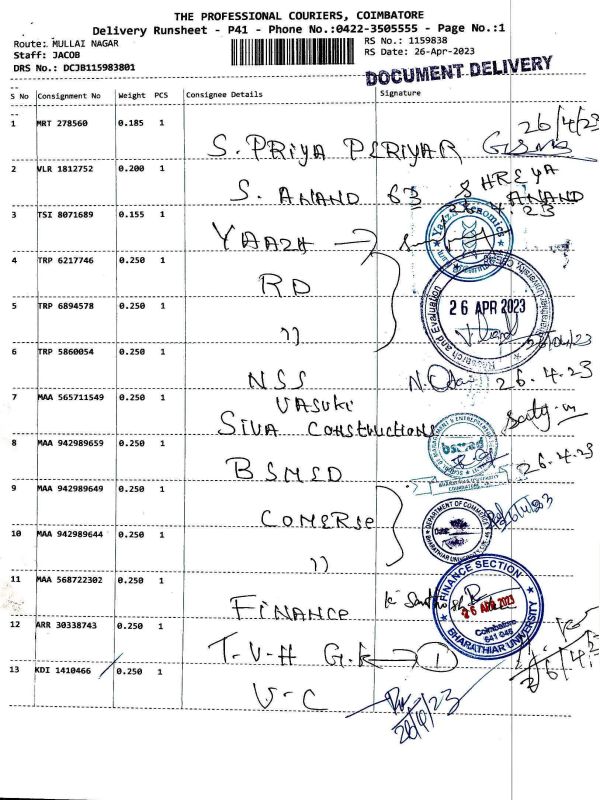 THE PROFESSIONAL COURIERS, COIMBATORE
Delivery Runsheet - P41 - Phone No.:0422-3505555 - Page No.:1
Route: MULLAI NAGAR RS No.: 1159838
Staff: JACOB RS Date: 26-Apr-2023
DRS No.: DCJB115983801
DOCUMENT DELIVERY
S No Consignment No Weight PCS Consignee Details Signature
1 MRT 278560 0.185 1 S. PRIYA PERIYAR 26/4/23
2 VLR 1812752 0.200 1 S. ANAND 63 SHREYA ANAND
3 TSI 8071689 0.155 1 YAAZH
4 TRP 6217746 0.250 1 RD
5 TRP 6894578 0.250 1 ))
Research and Evaluation
26 APR 2023
6 TRP 5860054 0.250 1 NSS 26.4.23
7 MAA 565711549 0.250 1 VASUKI
SIVA CONSTRUCTIONS
8 MAA 942989659 0.250 1 BSMED 26.4.23
bsmed
9 MAA 942989649 0.250 1 COMERSE
DEPARTMENT OF COMMERCE
10 MAA 942989644 0.250 1 ))
11 MAA 568722302 0.250 1 FINANCE
FINANCE SECTION
26 APR 2023
Coimbatore
641 046
BHARATHIAR UNIVERSITY
12 ARR 30338743 0.250 1 T.V.H G.K 1
13 KDI 1410466 0.250 1 V-C
26/4/23